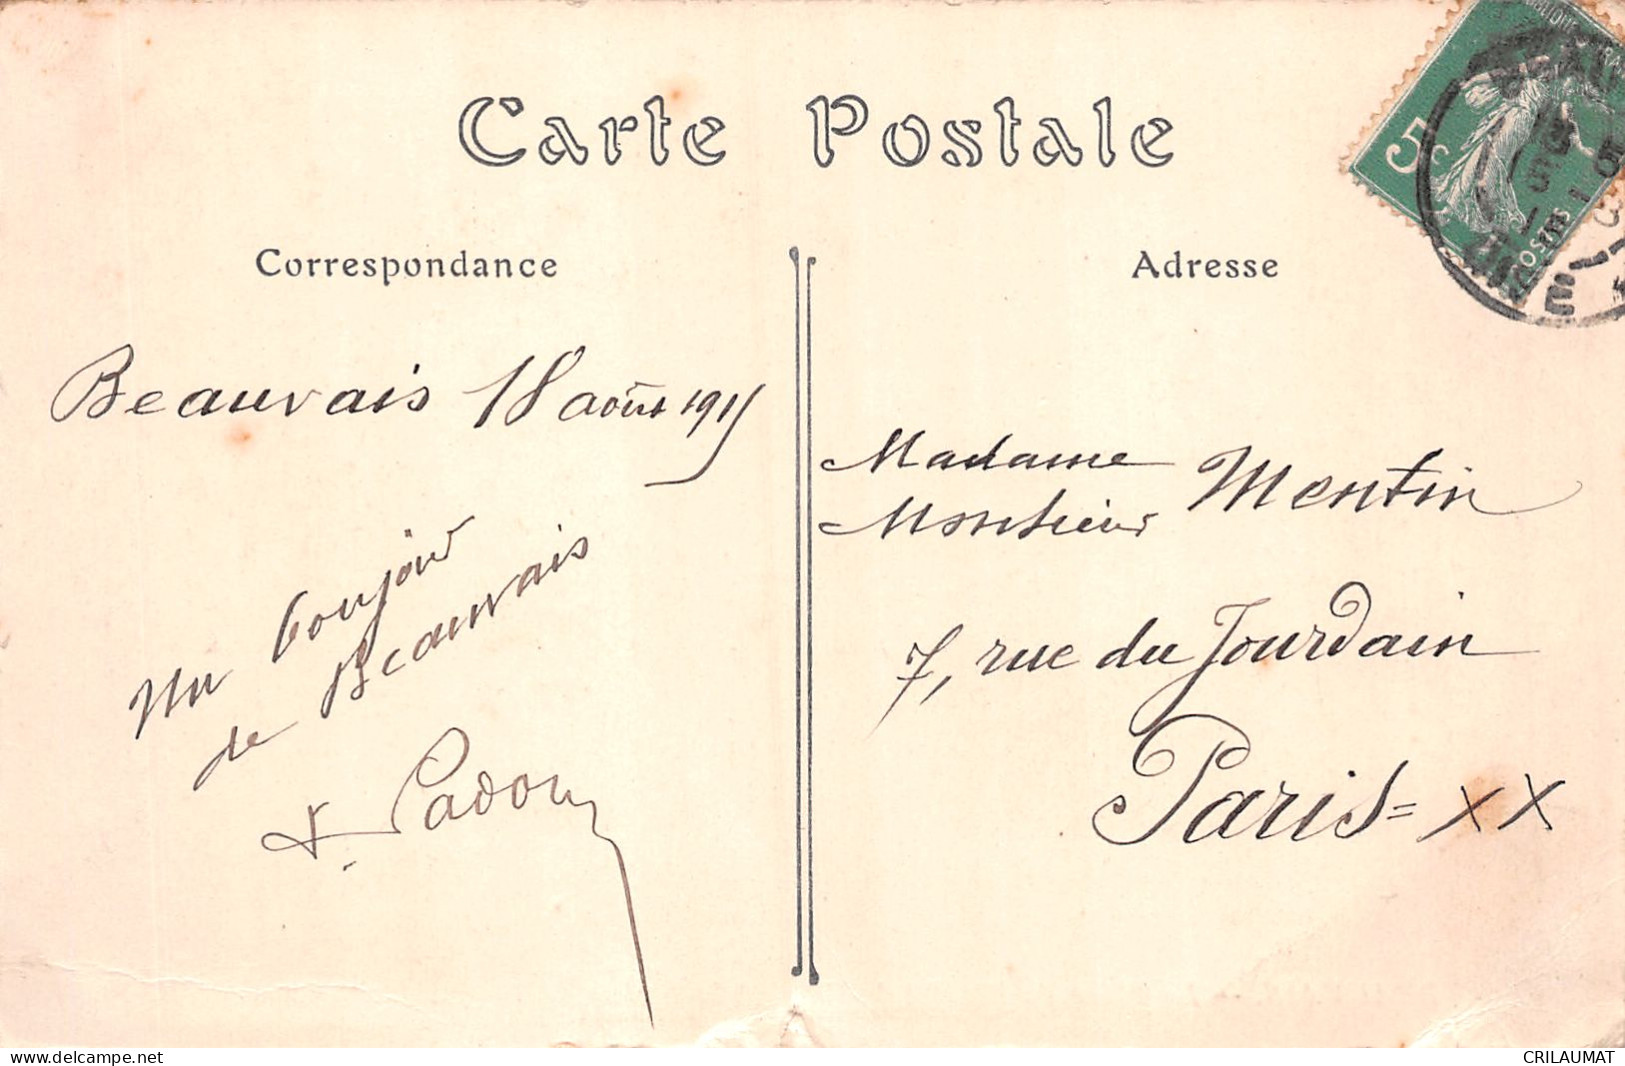 Carte Postale
Correspondance
Beauvais 18 août 1915
Un bonjour
de Beauvais
Adresse
Madame
Monsieur Mentin
7, rue du Jourdain
Paris = XX
5c
POSTES
www.delcampe.net
CRILAUMAT